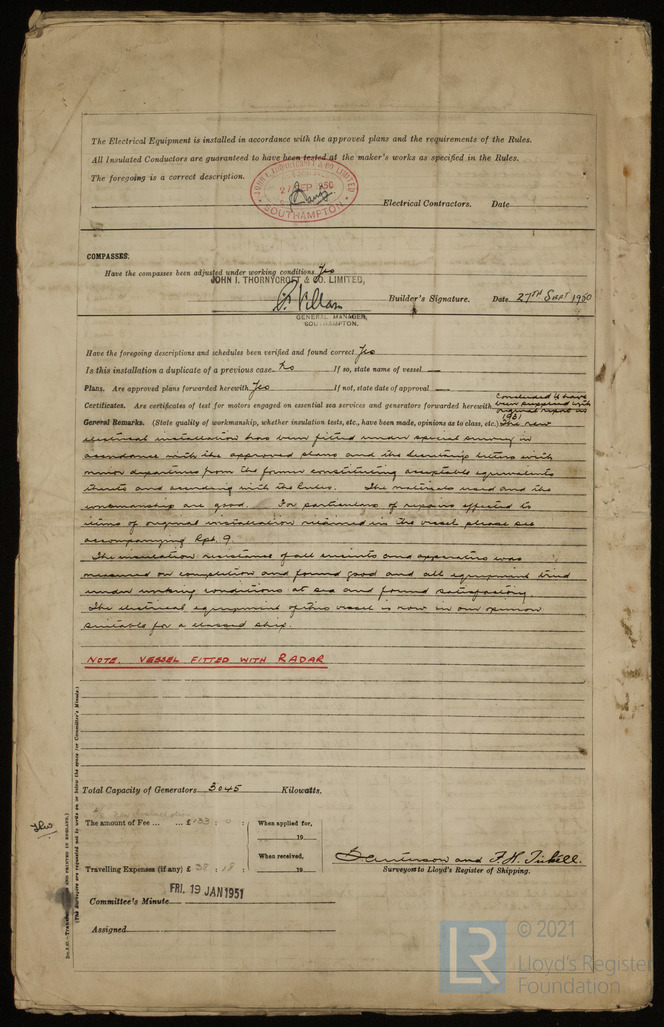 The Electrical Equipment is installed in accordance with the approved plans and the requirements of the Rules.
All Insulated Conductors are guaranteed to have been tested at the maker's works as specified in the Rules.
The foregoing is a correct description.
JOHN I. THORNYCROFT & CO. LIMITED
27 SEP 1950
SOUTHAMPTON
Electrical Contractors. Date
COMPASSES.
Have the compasses been adjusted under working conditions Yes
JOHN I. THORNYCROFT & CO. LIMITED,
Builder's Signature. Date 27TH SEPT 1950
GENERAL MANAGER,
SOUTHAMPTON.
Have the foregoing descriptions and schedules been verified and found correct Yes
Is this installation a duplicate of a previous case No If so, state name of vessel —
Plans. Are approved plans forwarded herewith Yes If not, state date of approval —
Certificates. Are certificates of test for motors engaged on essential sea services and generators forwarded herewith Concluded to have
been supplied with
original report in
1931
General Remarks. (State quality of workmanship, whether insulation tests, etc., have been made, opinions as to class, etc.) The new
electrical installation has been fitted under special survey in
accordance with the approved plans and the Secretary's letters with
minor departures from the former constituting acceptable equivalents
thereto and according with the Rules. The materials used and the
workmanship are good. For particulars of repairs effected to
items of original installation retained in the vessel please see
accompanying Rpt. 9.
The insulation resistance of all circuits and apparatus was
measured on completion and found good and all equipment tried
under working conditions at sea and found satisfactory.
The electrical equipment of this vessel is now in our opinion
suitable for a classed ship.
NOTE. VESSEL FITTED WITH RADAR
Total Capacity of Generators 3045 Kilowatts.
The amount of Fee ... ... £ 133 : 0 : When applied for,
19
When received,
Travelling Expenses (if any) £ 38 : 18 : 19
and F.H. Tickell.
Surveyors to Lloyd's Register of Shipping.
Committee's Minute FRI. 19 JAN 1951
Assigned
(The Surveyors are requested not to write on or below the space for Committee's Minute.)
© 2021
Lloyd's Register
Foundation
LR